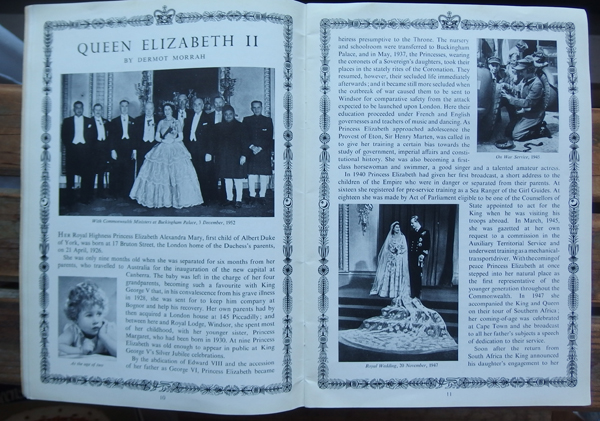 QUEEN ELIZABETH II
BY DERMOT MORRAH
With Commonwealth Ministers at Buckingham Palace, 3 December, 1952
HER Royal Highness Princess Elizabeth Alexandra Mary, first child of Albert Duke
of York, was born at 17 Bruton Street, the London home of the Duchess's parents,
on 21 April, 1926.
She was only nine months old when she was separated for six months from her
parents, who travelled to Australia for the inauguration of the new capital at
Canberra. The baby was left in the charge of her four
grandparents, becoming such a favourite with King
George V that, in his convalescence from his grave illness
in 1928, she was sent for to keep him company at
Bognor and help his recovery. Her own parents had by
then acquired a London house at 145 Piccadilly; and
between here and Royal Lodge, Windsor, she spent most
of her childhood, with her younger sister, Princess
Margaret, who had been born in 1930. At nine Princess
Elizabeth was old enough to appear in public at King
George V's Silver Jubilee celebrations.
By the abdication of Edward VIII and the accession
of her father as George VI, Princess Elizabeth became
At the age of two
10
heiress presumptive to the Throne. The nursery
and schoolroom were transferred to Buckingham
Palace, and in May, 1937, the Princesses, wearing
the coronets of a Sovereign's daughters, took their
places in the stately rites of the Coronation. They
resumed, however, their secluded life immediately
afterwards; and it became still more secluded when
the outbreak of war caused them to be sent to
Windsor for comparative safety from the attack
expected to be launched upon London. Here their
education proceeded under French and English
governesses and teachers of music and dancing. As
Princess Elizabeth approached adolescence the
Provost of Eton, Sir Henry Marten, was called in
to give her training a certain bias towards the
study of government, imperial affairs and consti-
tutional history. She was also becoming a first-
class horsewoman and swimmer, a good singer and a talented amateur actress.
On War Service, 1945
In 1940 Princess Elizabeth had given her first broadcast, a short address to the
children of the Empire who were in danger or separated from their parents. At
sixteen she registered for pre-service training as a Sea Ranger of the Girl Guides. At
eighteen she was made by Act of Parliament eligible to be one of the Counsellors of
State appointed to act for the
King when he was visiting his
troops abroad. In March, 1945,
she was gazetted at her own
request to a commission in the
Auxiliary Territorial Service and
underwent training as a mechanical-
transport driver. With the coming of
peace Princess Elizabeth at once
stepped into her natural place as
the first representative of the
younger generation throughout the
Commonwealth. In 1947 she
accompanied the King and Queen
on their tour of Southern Africa:
her coming-of-age was celebrated
at Cape Town and she broadcast
to all her father's subjects a speech
of dedication to their service.
Soon after the return from
South Africa the King announced
his daughter's engagement to her
Royal Wedding, 20 November, 1947
11